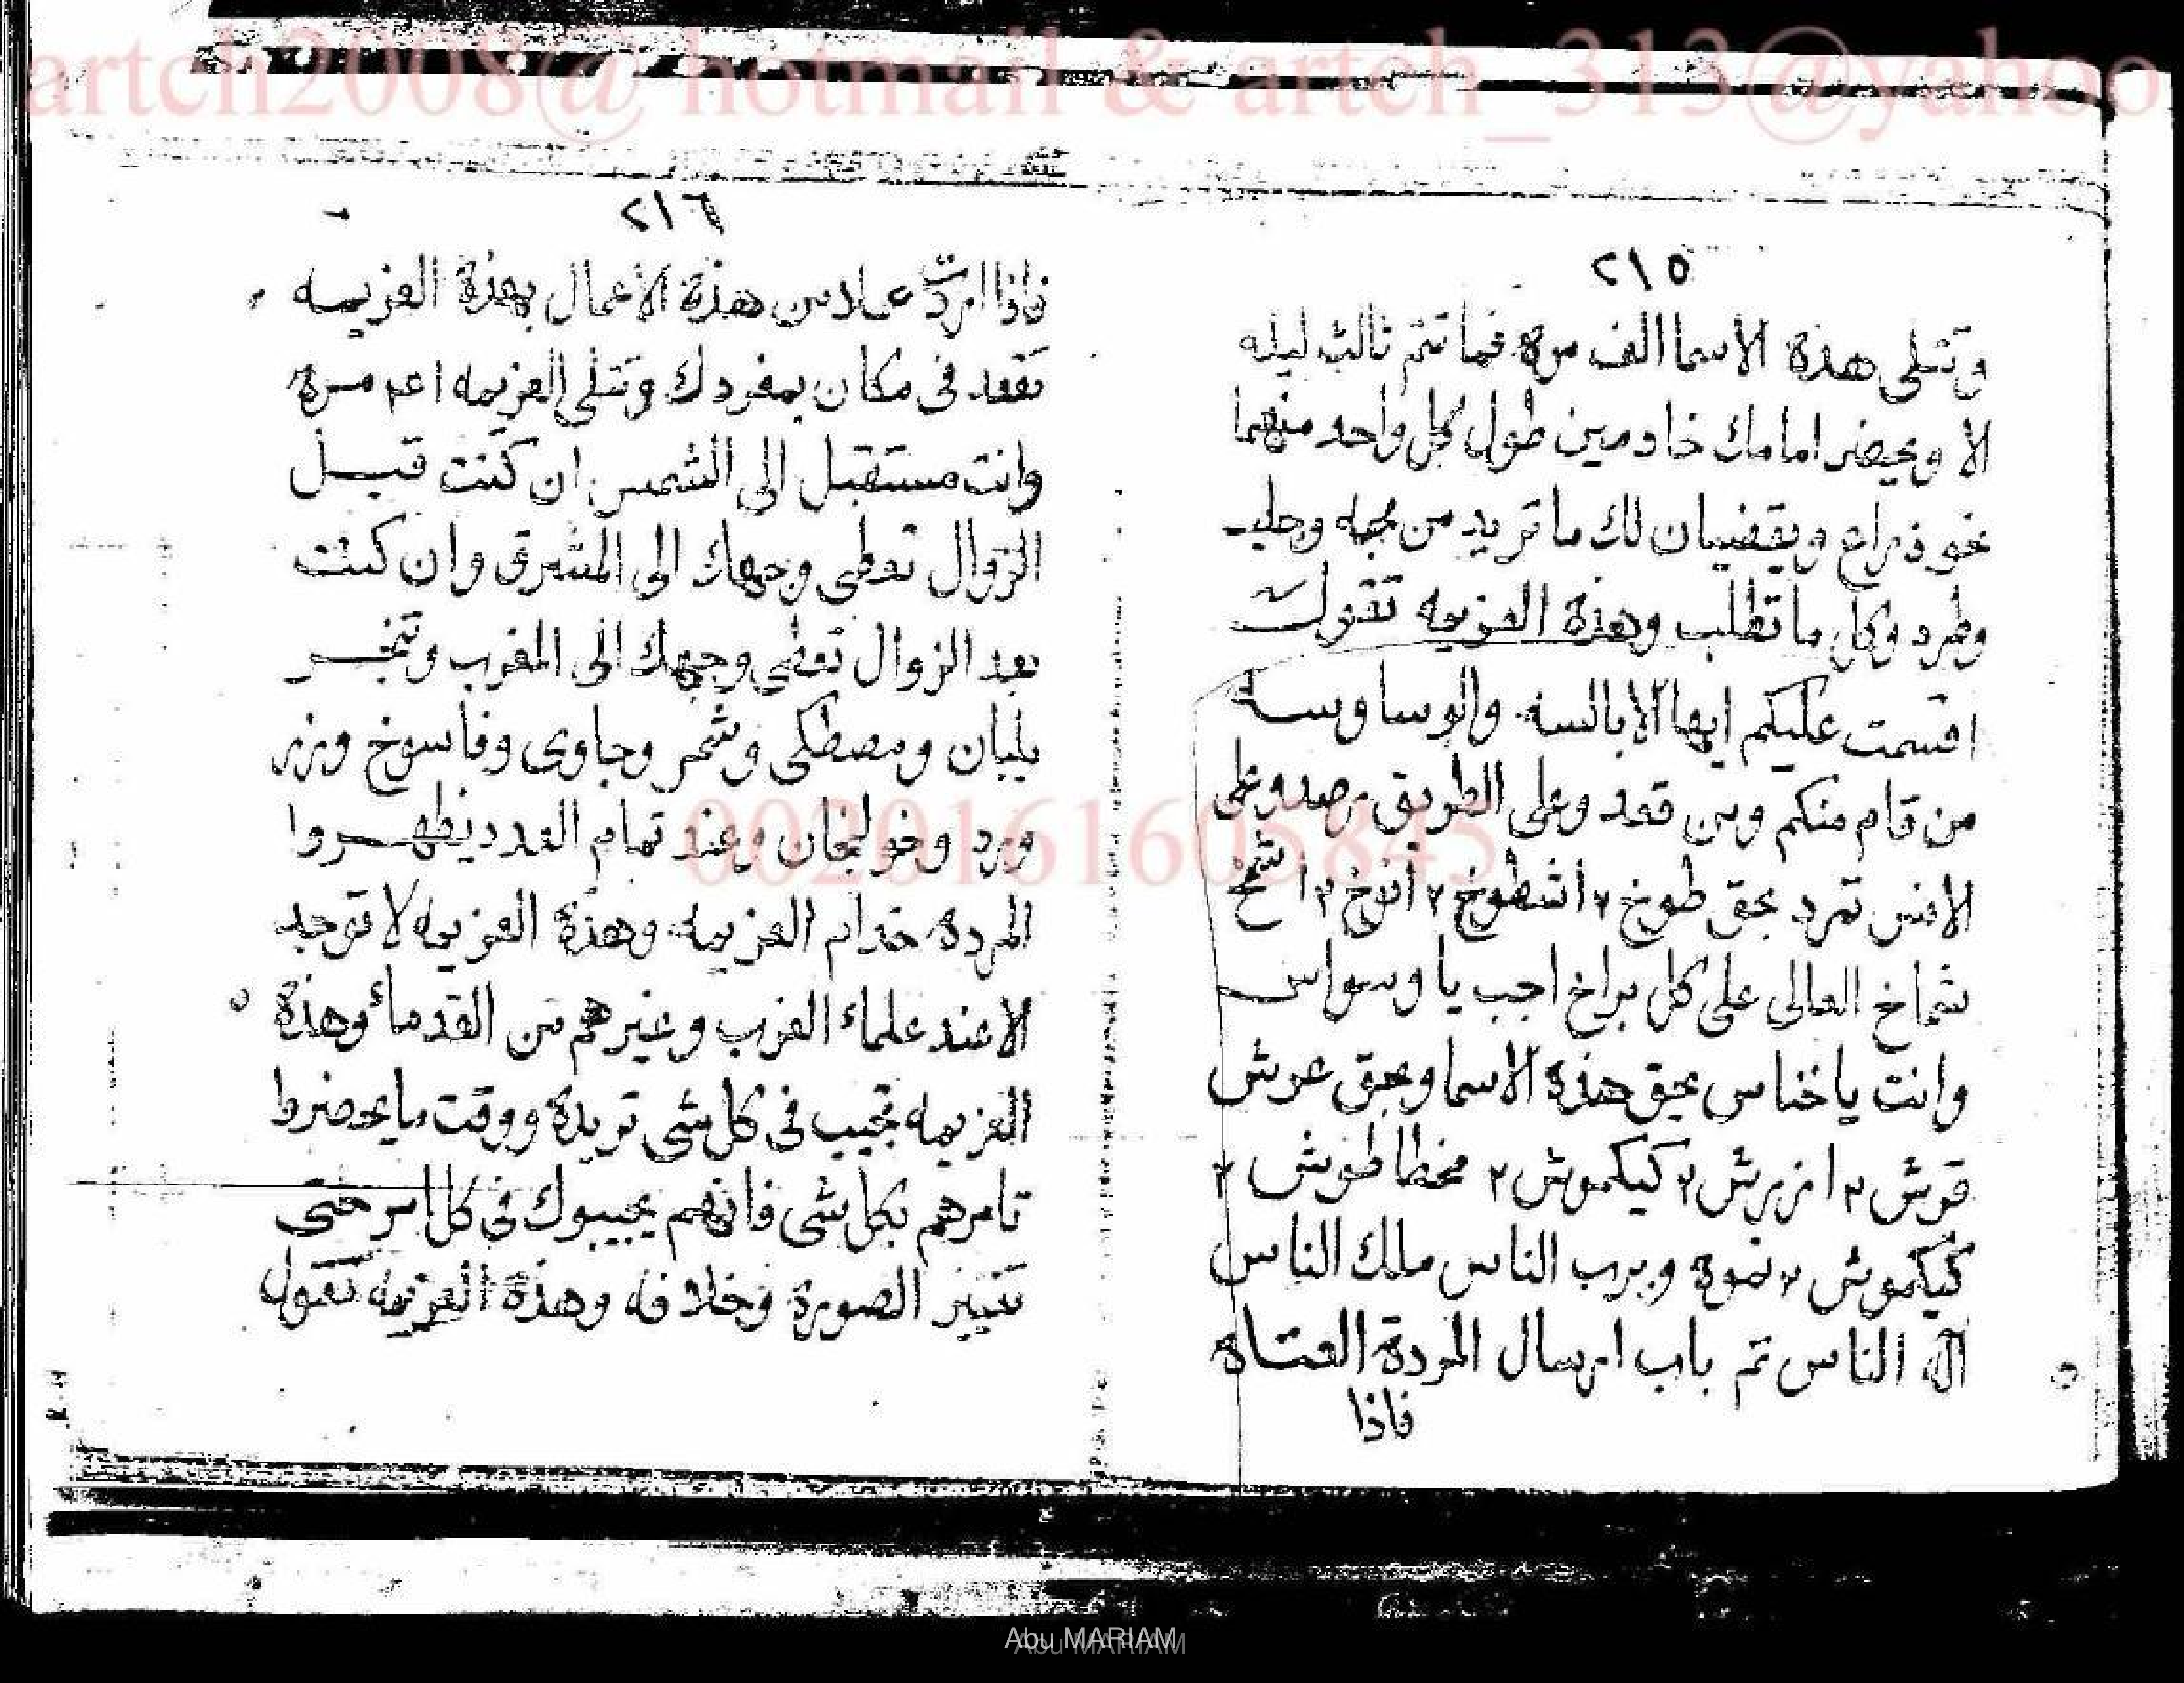 artch2008@ hotmail & artch_313@yahoo
٢١٥
وتتلى هذة الاسما الف مرة فما تتم ثالث ليله
الا ويحضر امامك خادمين طول كل واحد منهما
نحو ذراع ويقضيان لك ما تريد من محبه وجليب
وطرد وكل ما تطلب وهذة العزيمه تقول
اقسمت عليكم ايها الابالسه والوساوسه
من قام منكم ومن قعد وعلى الطريق رصد وعلى
الانس تمرد بحق طوخ ٢ اشطوخ ٢ انوخ ٢ اشمخ
شماخ العالى على كل براخ اجب يا وسواس
وانت يا خناس بحق هذة الاسما وبحق عرش
قوش ٢ ازرش ٢ كيكموش ٢ مخطاطوش ٢
كيكموش ٢ نموة وبرب الناس ملك الناس
اله الناس تم باب ارسال المردة العتاه
فاذا
٢١٦
فاذا اردت عملا من هذة الاعمال بهذة العزيمه
تقعد فى مكان بمفردك وتتلى العزيمه مرة
وانت مستقبل الى الشمس ان كنت قبل
الزوال تعطى وجهك الى المشرق وان كنت
بعد الزوال تعطى وجهك الى المغرب وتبخر
بلبان ومصطكى وشمر وجاوى وفاسوخ وزر
ورد وخولنجان وعند تمام العدد يظهروا
المرده خدام العزيمه وهذة العزيمه لا توجد
الا عند علماء الغرب وغيرهم من القدماء وهذة
العزيمه تجيب فى كل شى تريدة ووقت ما يحضروا
تامرهم بكل شى فانهم يجيبوك فى كل امر حتى
تغيير الصورة وخلافه وهذة العزيمه تقول
0020161605845
Abu MARIAM